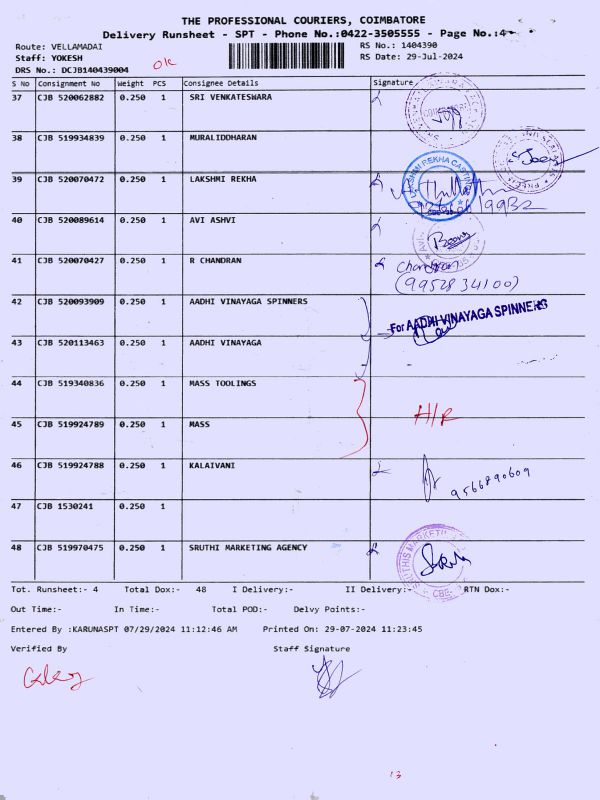 THE PROFESSIONAL COURIERS, COIMBATORE
Delivery Runsheet - SPT - Phone No.:0422-3505555 - Page No.:4
Route: VELLAMADAI RS No.: 1404390
Staff: YOKESH OK RS Date: 29-Jul-2024
DRS No.: DCJB140439004
S No Consignment No Weight PCS Consignee Details Signature
37 CJB 520062882 0.250 1 SRI VENKATESWARA
38 CJB 519934839 0.250 1 MURALIDDHARAN
39 CJB 520070472 0.250 1 LAKSHMI REKHA LAKSHMI REKHA CASTING
40 CJB 520089614 0.250 1 AVI ASHVI
41 CJB 520070427 0.250 1 R CHANDRAN Chandran
(9952834100)
42 CJB 520093909 0.250 1 AADHI VINAYAGA SPINNERS For AADHI VINAYAGA SPINNERS
43 CJB 520113463 0.250 1 AADHI VINAYAGA
44 CJB 519340836 0.250 1 MASS TOOLINGS
H/R
45 CJB 519924789 0.250 1 MASS
46 CJB 519924788 0.250 1 KALAIVANI 9566890609
47 CJB 1530241 0.250 1
48 CJB 519970475 0.250 1 SRUTHI MARKETING AGENCY
Tot. Runsheet:- 4 Total Dox:- 48 I Delivery:- II Delivery:- RTN Dox:-
Out Time:- In Time:- Total POD:- Delvy Points:-
Entered By :KARUNASPT 07/29/2024 11:12:46 AM Printed On: 29-07-2024 11:23:45
Verified By Staff Signature
13